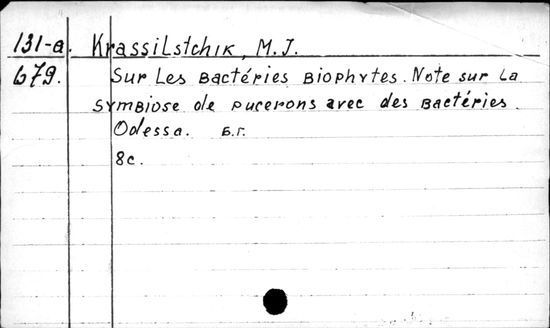 131-a. Krassilstchik, M.J.
679. Sur Les Bactéries Biophytes. Note sur La
symbiose de pucerons avec des Bactéries.
Odessa. Б.г.
8с.